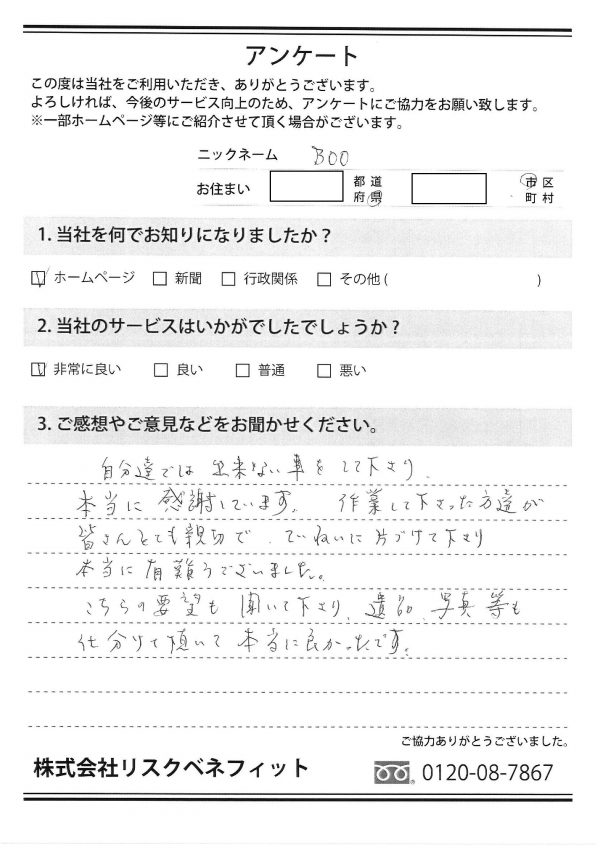 アンケート
この度は当社をご利用いただき、ありがとうございます。
よろしければ、今後のサービス向上のため、アンケートにご協力をお願い致します。
※一部ホームページ等にご紹介させて頂く場合がございます。
ニックネーム BOO
お住まい 都 道 府 県 市 区 町 村
1. 当社を何でお知りになりましたか？
ホームページ 新聞 行政関係 その他 ( )
2. 当社のサービスはいかがでしたでしょうか？
非常に良い 良い 普通 悪い
3. ご感想やご意見などをお聞かせください。
自分達では出来ない事をして下さり、
本当に感謝しています。 作業して下さった方達が
皆さんとても親切で、ていねいに片づけて下さり
本当に有難うございました。
こちらの要望も聞いて下さり、遺品、写真等も
仕分けて頂いて本当に良かったです。
ご協力ありがとうございました。
株式会社リスクベネフィット 0120-08-7867